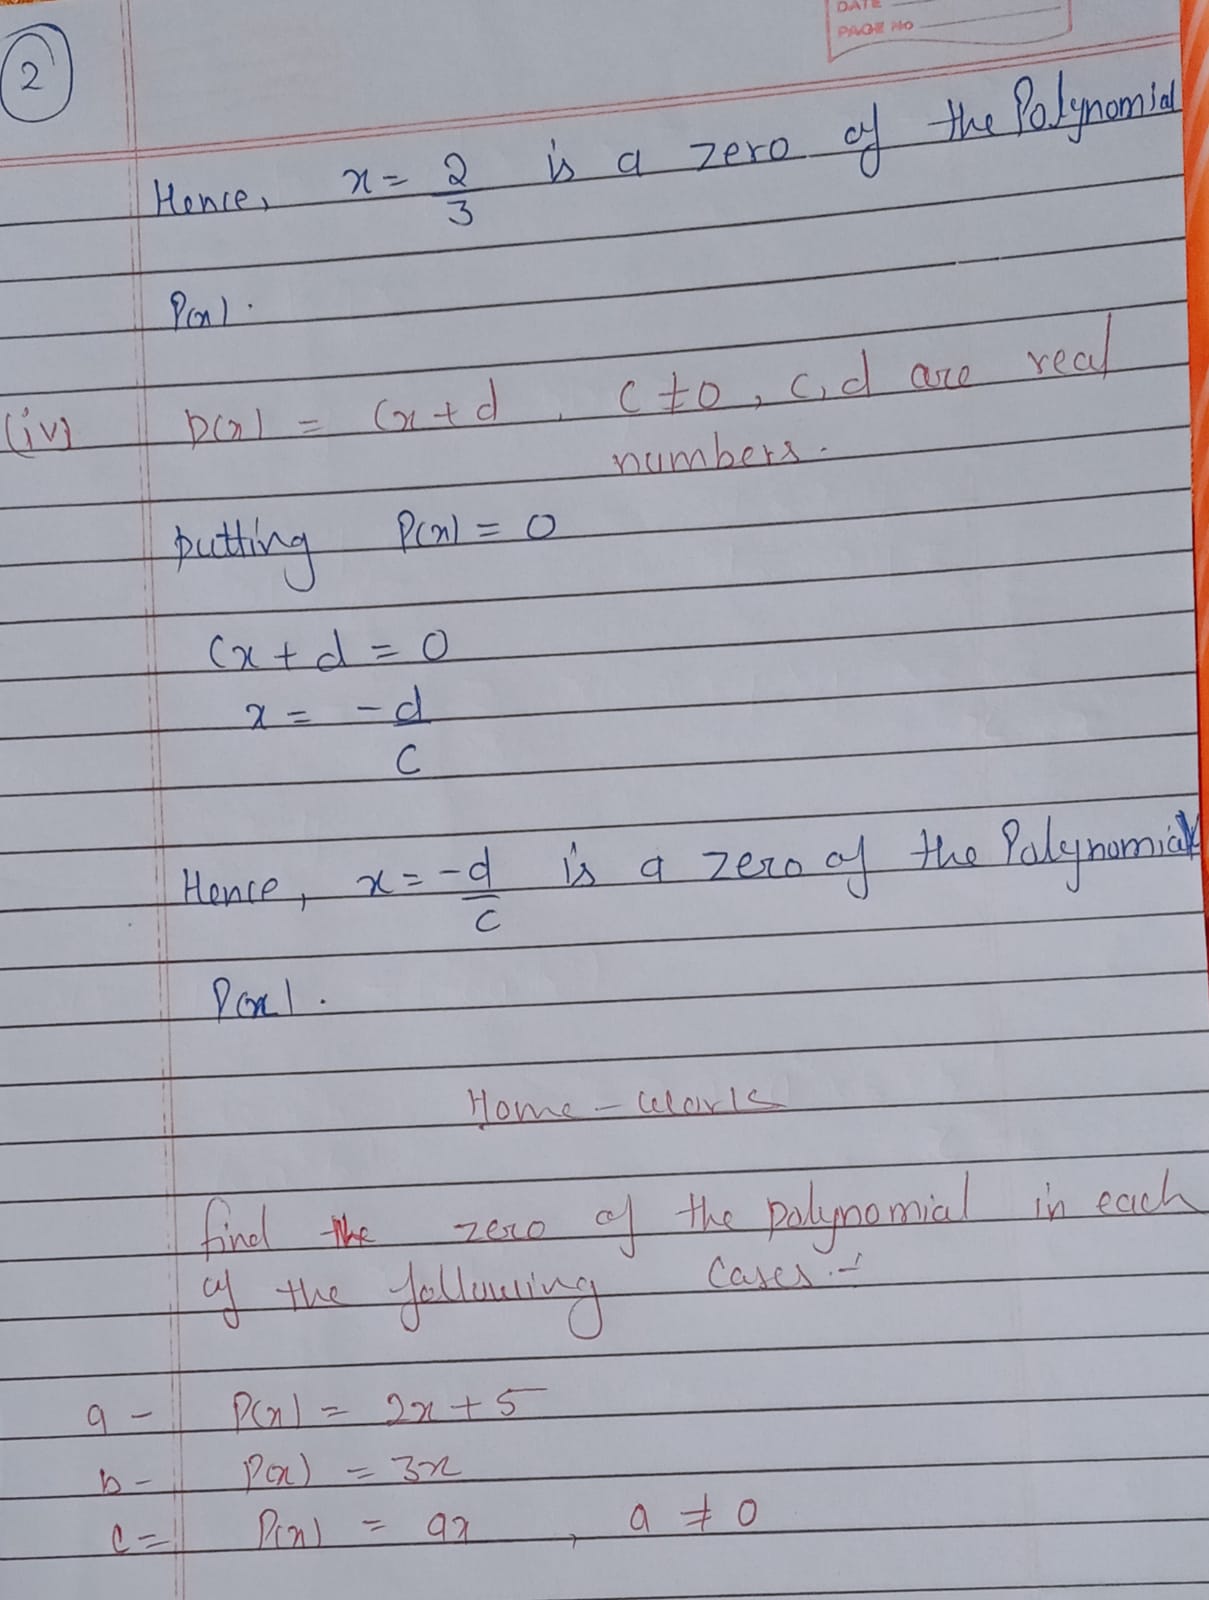 DATE
PAGE NO
2
Hence, x = 2/3 is a zero of the Polynomial
P(x).
(iv) p(x) = cx + d, c ≠ 0, c, d are real
numbers.
putting P(x) = 0
cx + d = 0
x = -d/c
Hence, x = -d/c is a zero of the Polynomial
P(x).
Home - Work
find the zero of the polynomial in each
of the following cases :-
a - P(x) = 2x + 5
b - P(x) = 3x
c = P(x) = ax, a ≠ 0